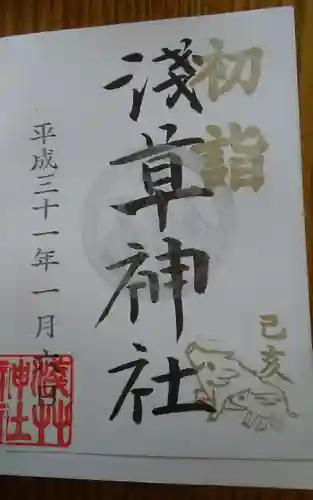 初詣
己亥
淺草神社
平成三十一年一月六日
淺草神社